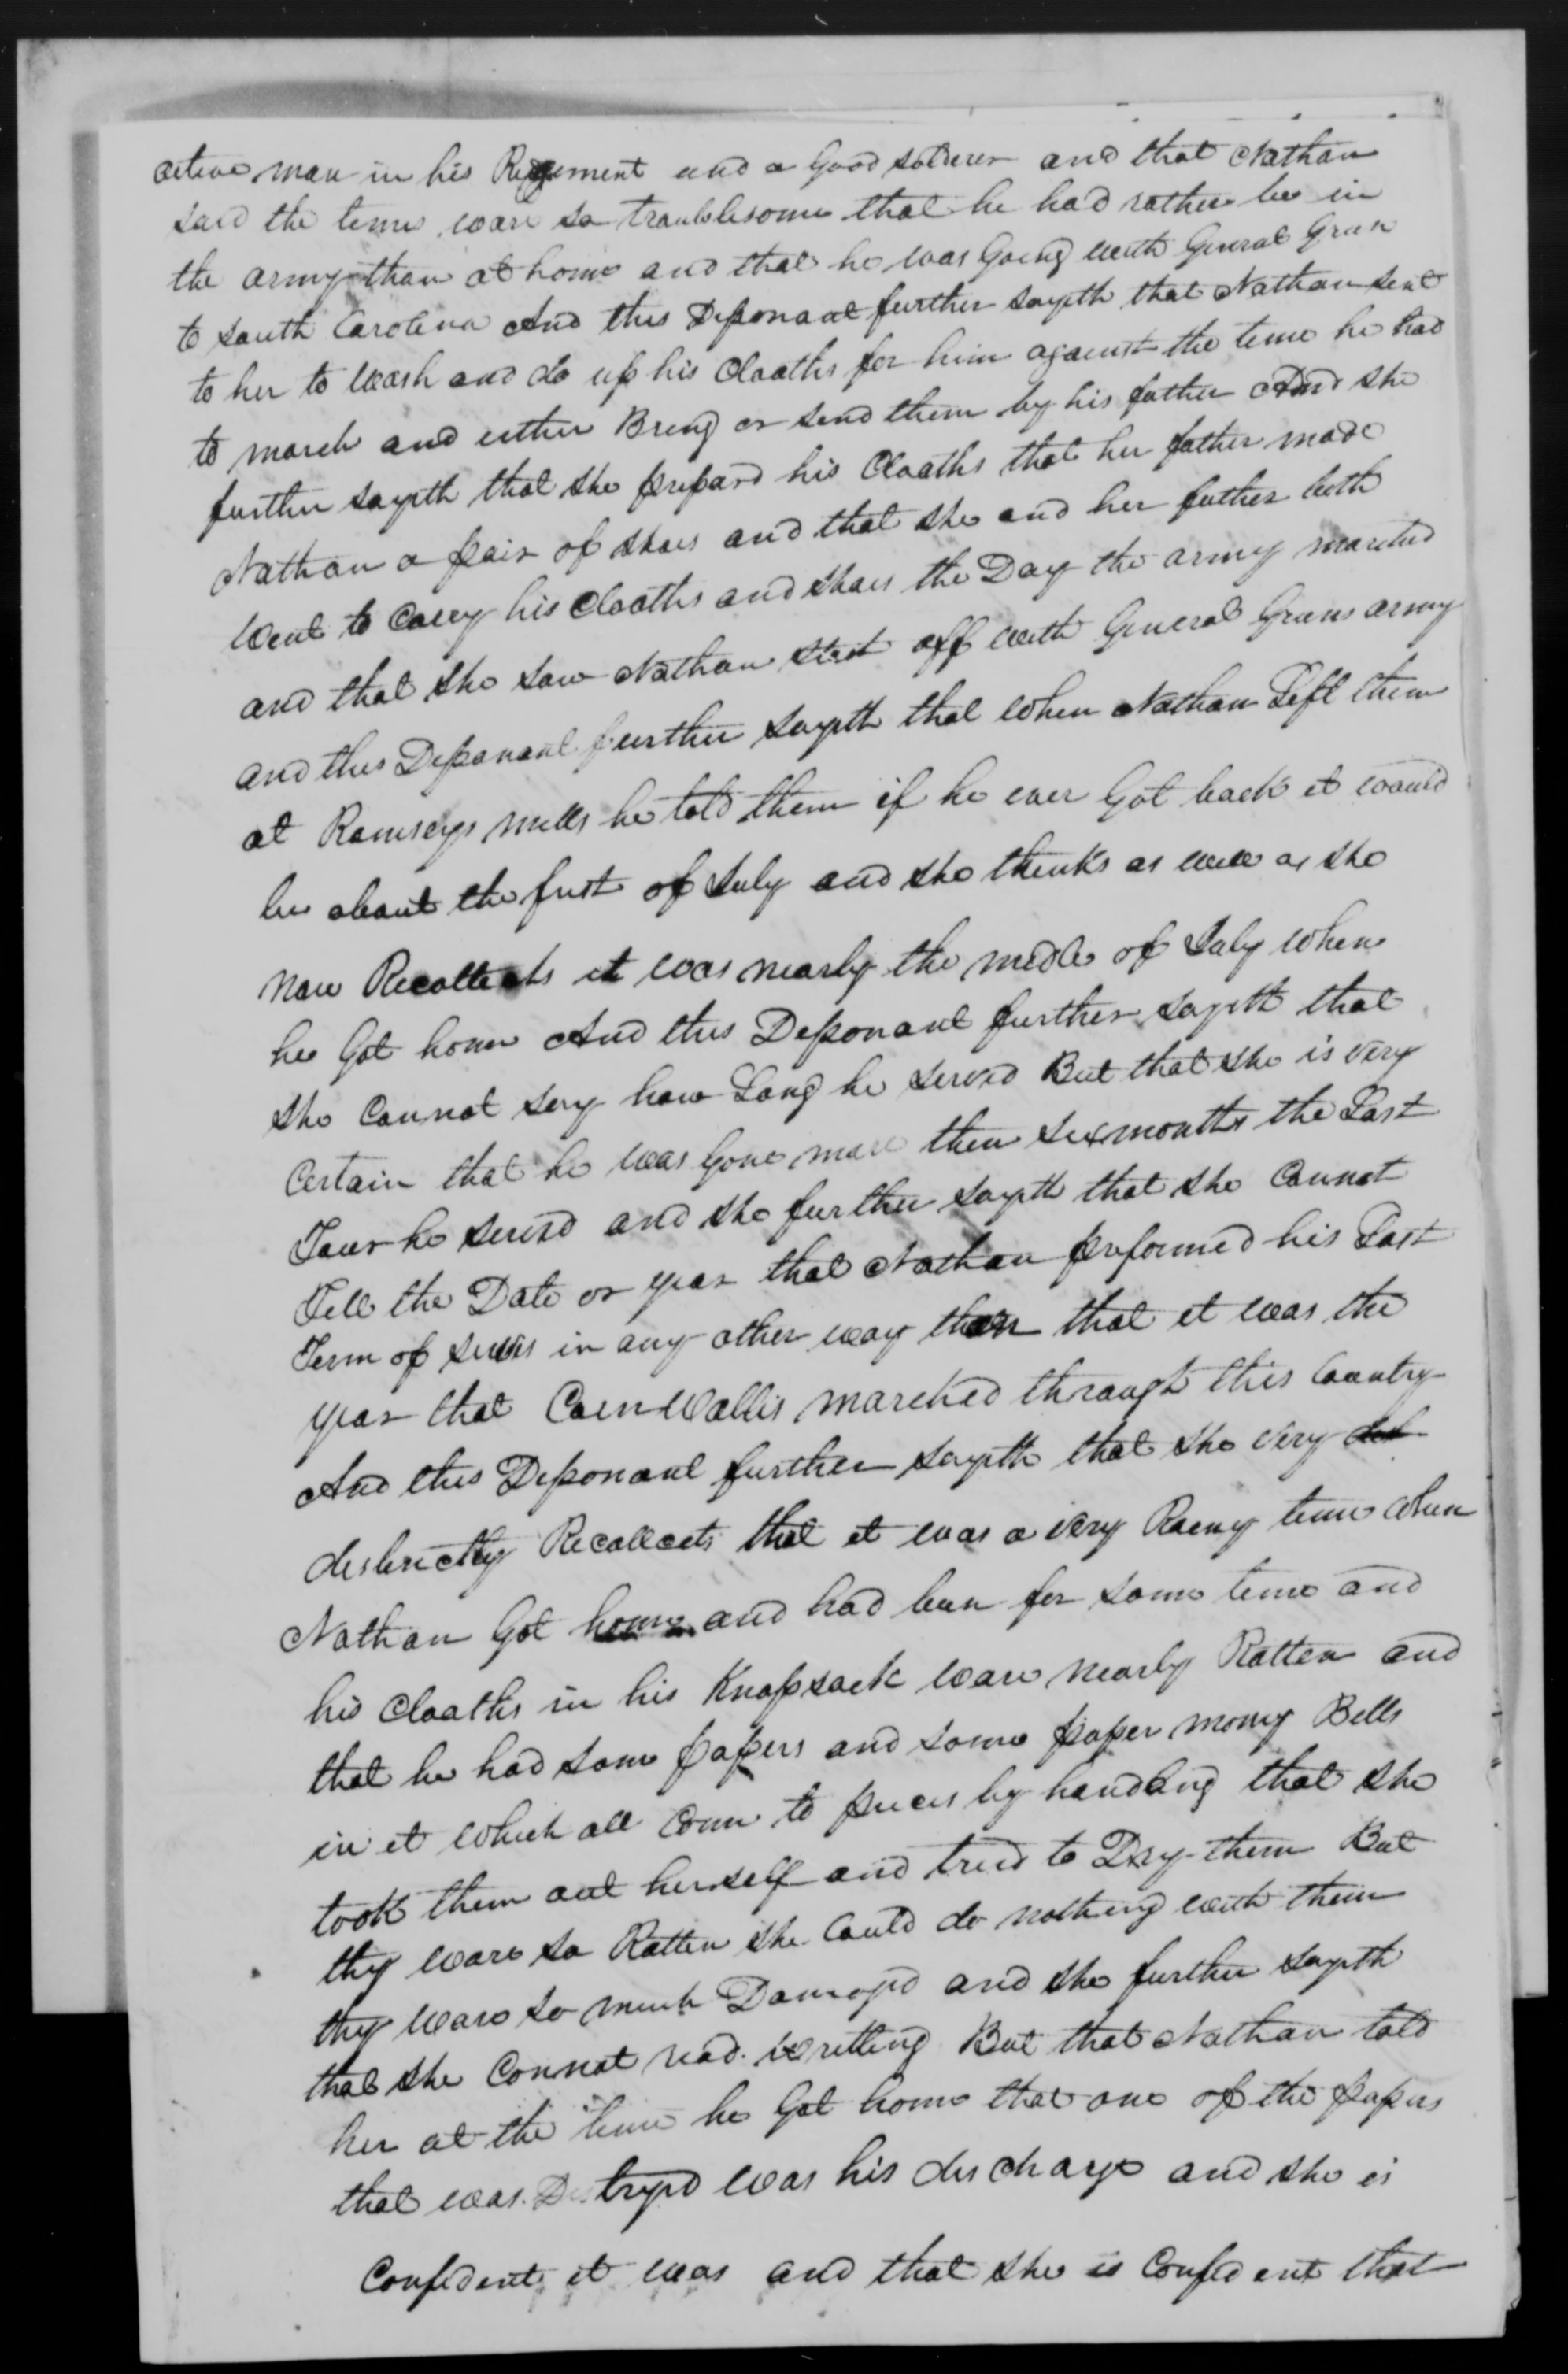 active man in his Regement and a Good solderer and that Nathan
said the times ware so troublesome that he had rather be in
the army than at home and that he was Going with General Green
to south Carolina And this Deponant further sayeth that Nathan sent
to her to wash and do up his Cloaths for him against the time he had
to march and either Bring or send them by his father And she
further sayeth that she prepard his Cloaths that her father made
Nathan a pair of shoes and that she and her father both
went to Carry his Cloaths and shoes the Day the army marched
and that she saw Nathan start off with General Greens army
and this Deponant further sayeth that when Nathan Left them
at Ramseys mills he told them if he ever Got back it would
be about the first of July and she thinks as well as she
now Recollects it was nearly the midle of July when
he Got home And this Deponant further sayeth that
she Cannot say how Long he served But that she is very
Certain that he was Gone more then six months the Last
Tour he served and she further sayeth that she Cannot
Tell the Date or year that Nathan preformed his Last
Term of servis in any other way than that it was the
year that CornWallis marched through this Country
And this Deponant further sayeth that she very
distinctly Recollects that it was a very Rainy time when
Nathan Got home and had been for some time and
his Cloaths in his Knapsack ware nearly Rotten and
that he had some papers and some paper money Bills
in it which all Come to pieces by handling that she
took them out herself and tried to Dry them But
they ware so Rotten she Could do nothing with them
they ware so much Damaged and she further sayeth
that she Connot read writting But that Nathan told
her at the time he Got home that one of the papers
that was Distroyd was his discharge and she is
Confident it was and that she is Confident that